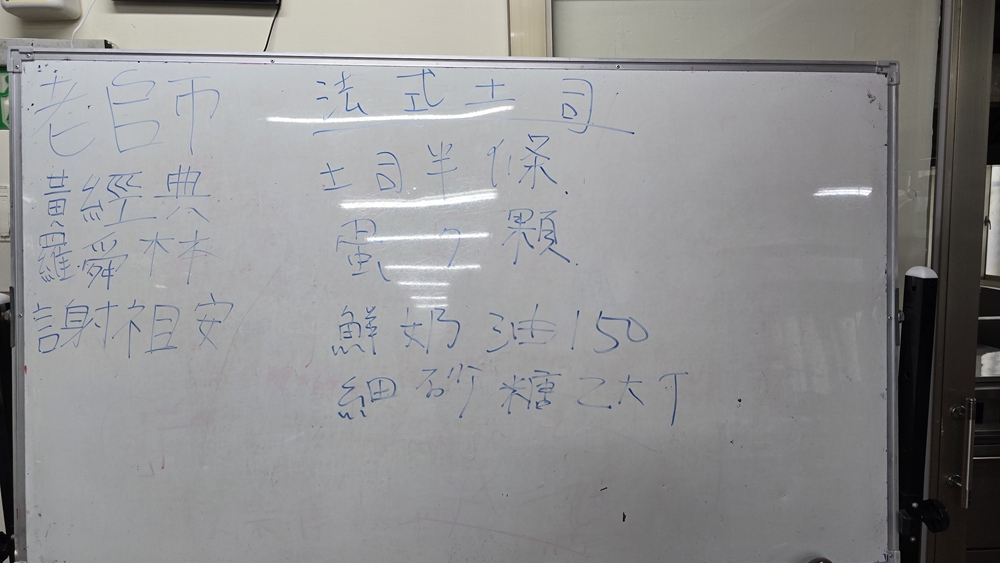 老師
黃經典
羅舜林
謝祖安
法式土司
土司半條
蛋 顆
鮮奶油150
細砂糖2大T